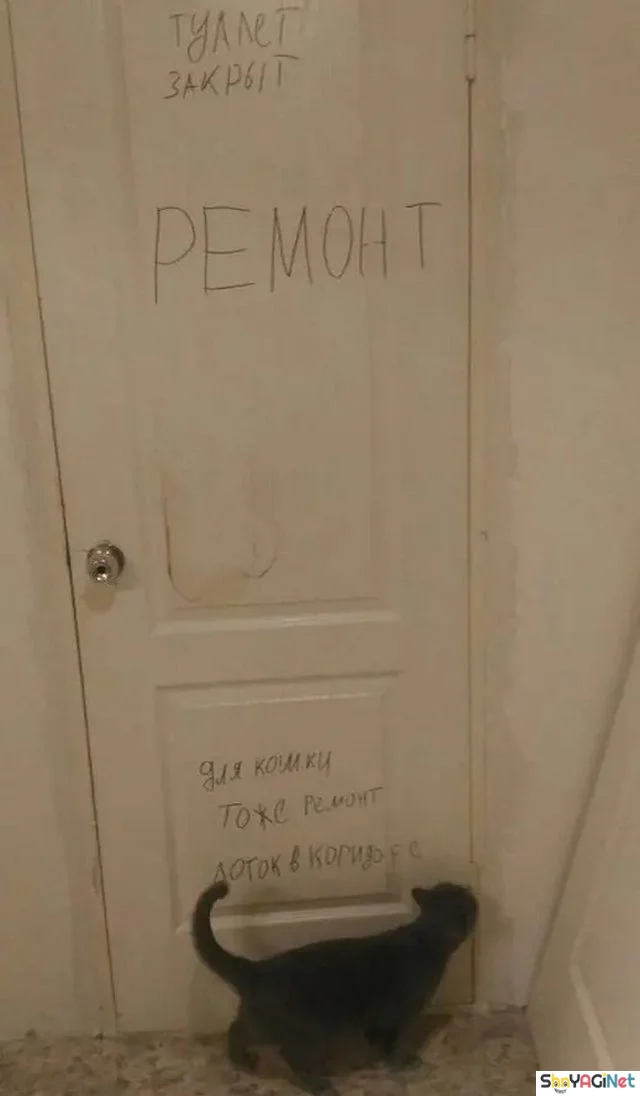 ТУЛЛЕТ
ЗАКРЫТ
РЕМОНТ
для кошки
ТОЖЕ РЕМОНТ
ЛОТОК В КОРИДОРЕ
ShnYAGiNet